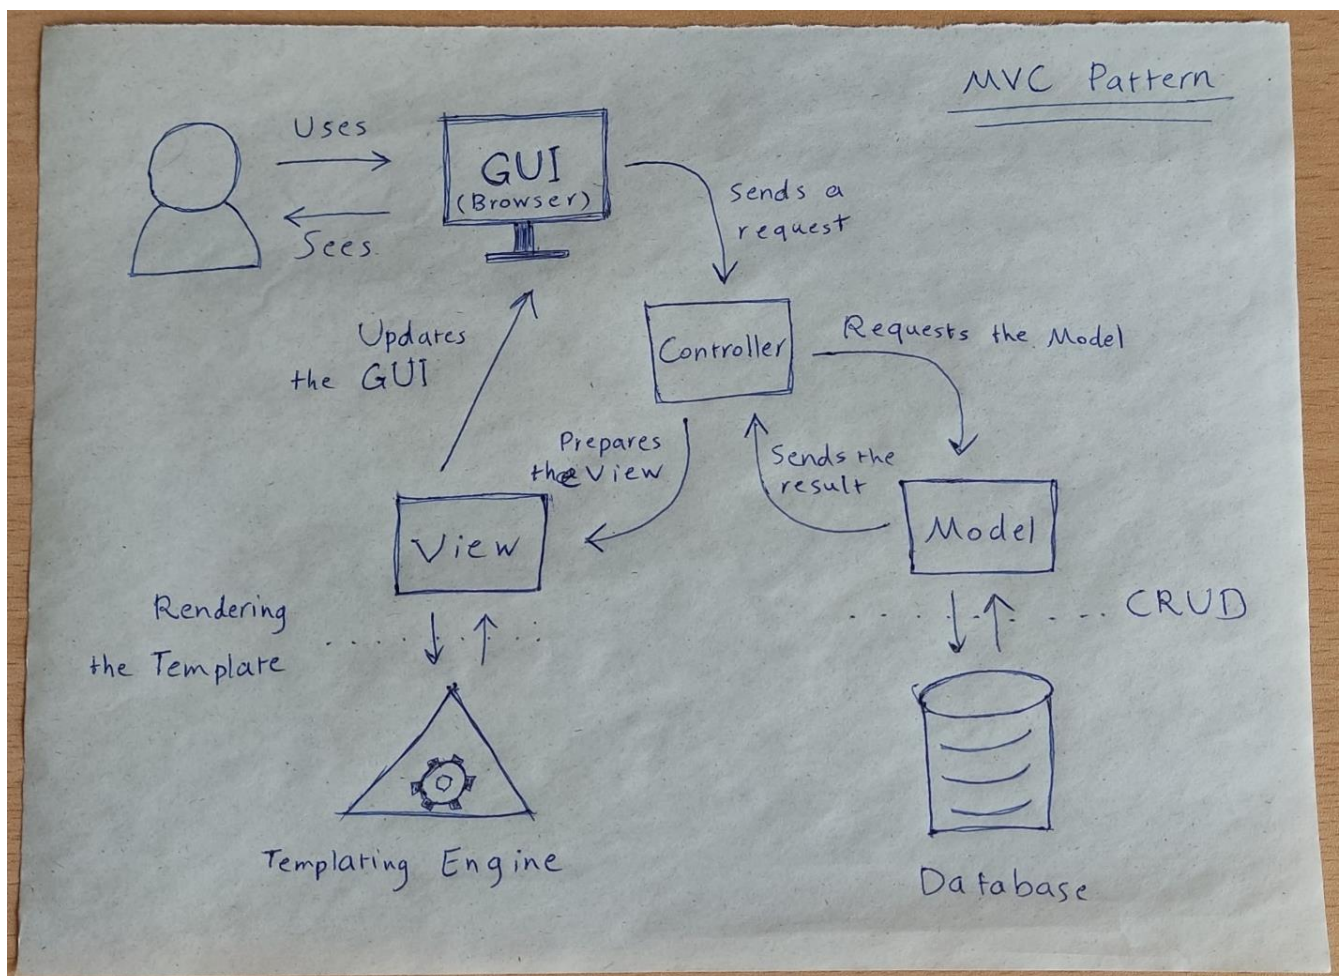 MVC Pattern
Uses
GUI
(Browser)
Sees
Sends a
request
Updates
the GUI
Controller
Requests the Model
Prepares
the View
Sends the
result
View
Model
Rendering
the Template
CRUD
Templating Engine
Database